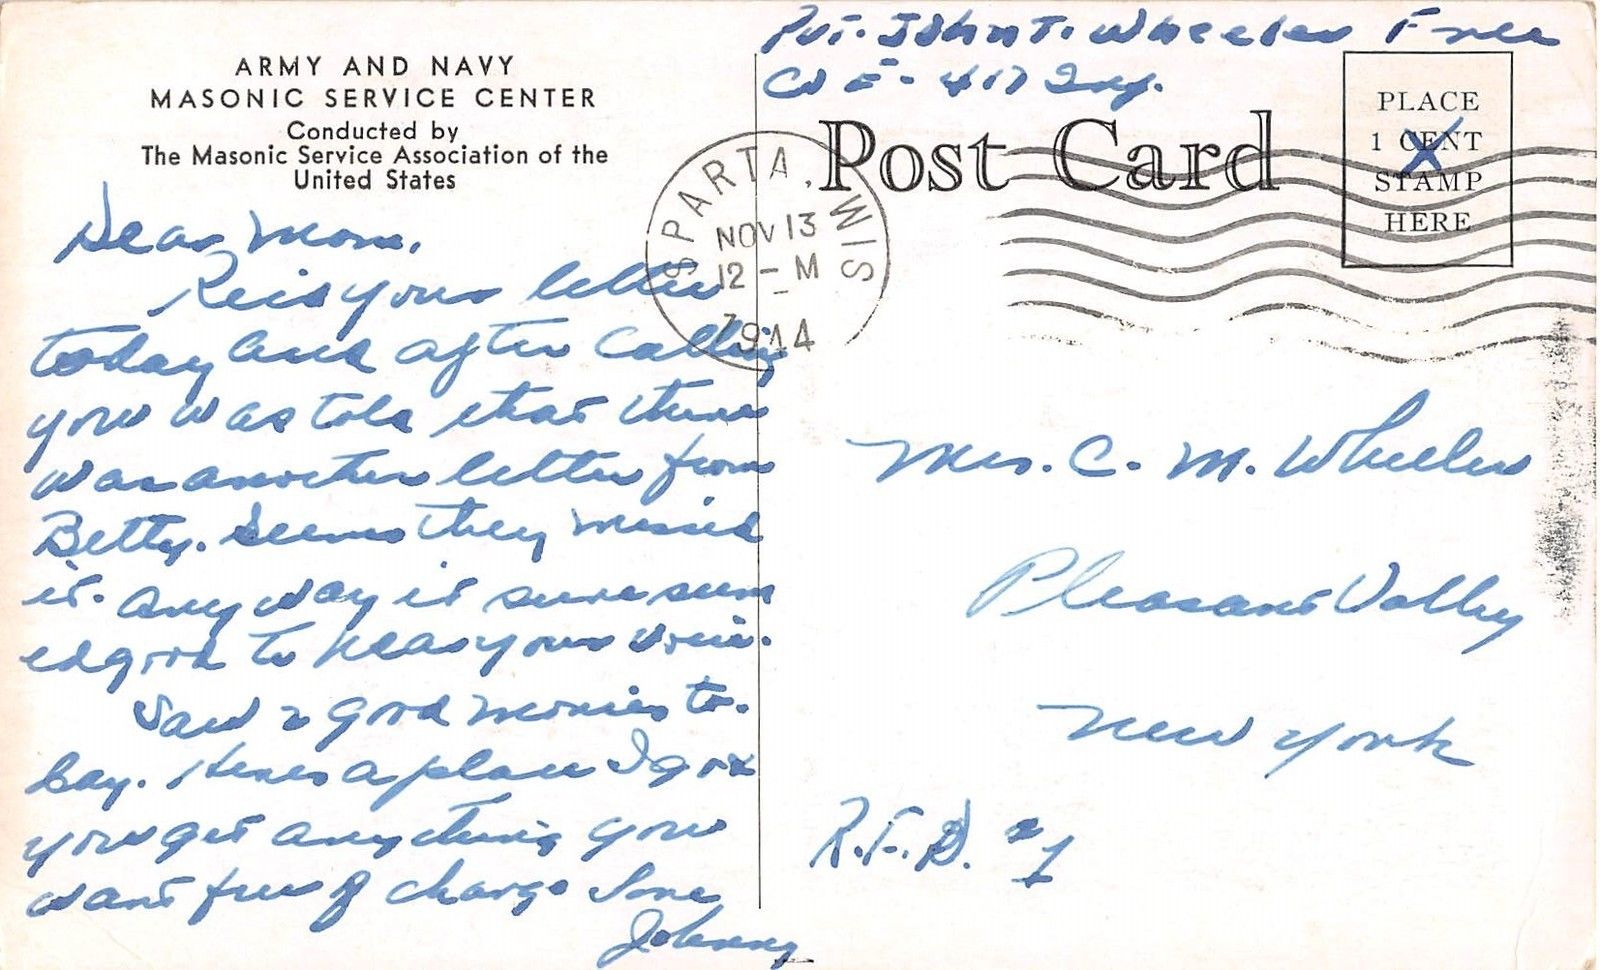 ARMY AND NAVY
MASONIC SERVICE CENTER
Conducted by
The Masonic Service Association of the
United States
Dear Mom,
Rec'd your letter
today and after calling
you was told that there
was another letter from
Betty. Seems they missed
it. Anyway it sure seem
ed good to hear your voice.
Saw 2 good movies to-
day. Heres a place
you get anything you
want free of charge Love
Johnny
Pvt. John T. Wheeler Free
Co E - 417 Inf.
Post Card
PLACE
1 CENT
STAMP
HERE
X
SPARTA, WIS
NOV 13
12 - M
1944
Mrs. C. M. Wheeler
Pleasant Valley
New York
R.F.D. #1